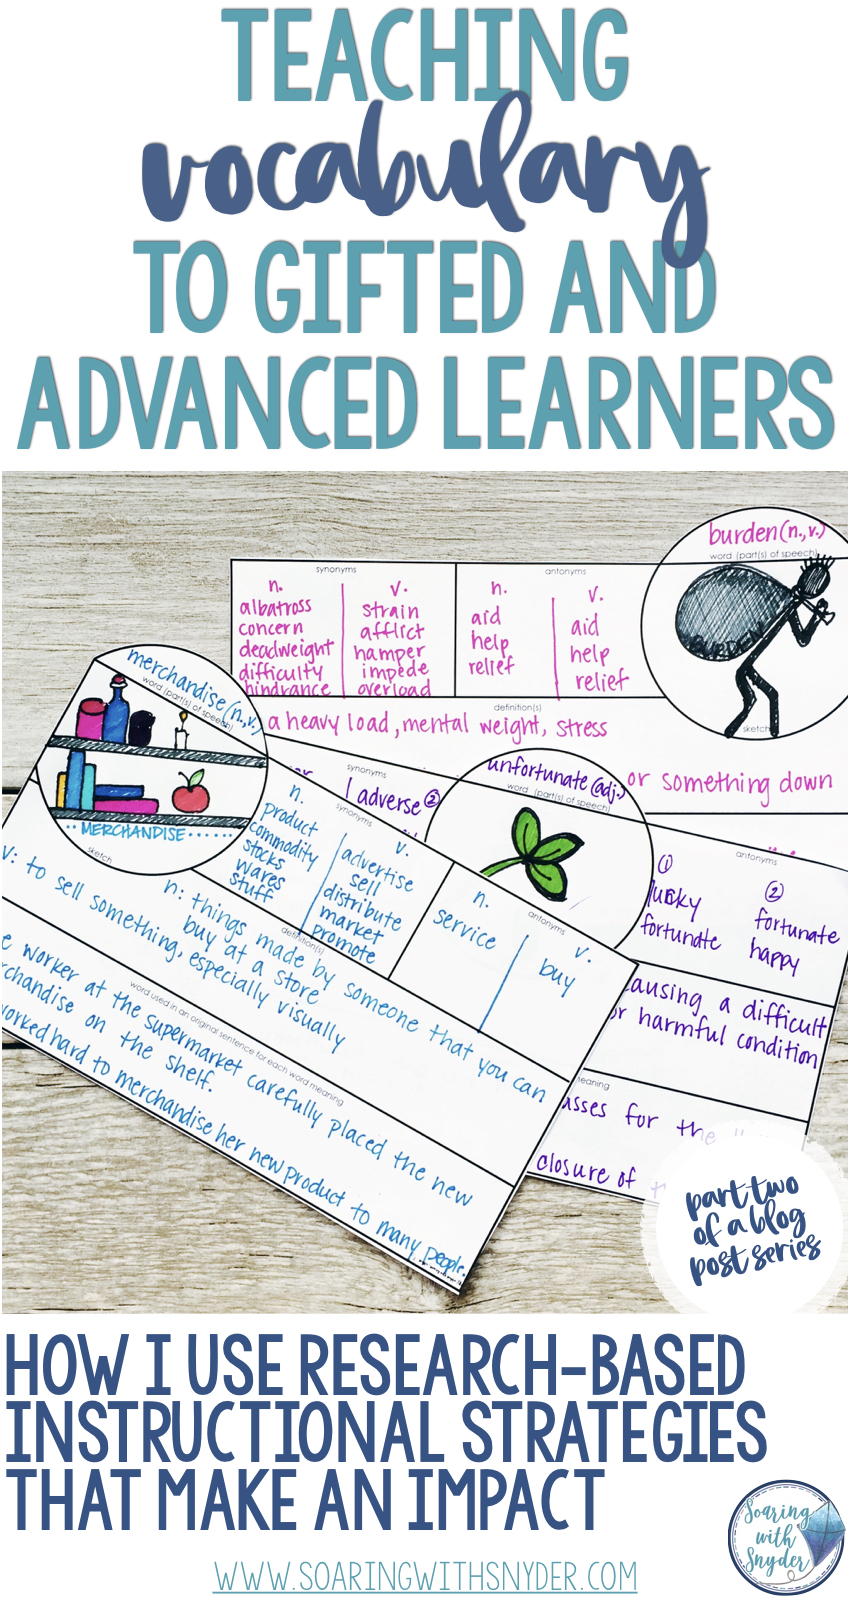 TEACHING
vocabulary
TO GIFTED AND
ADVANCED LEARNERS
burden (n., v.)
word (part(s) of speech)
BURDEN
sketch
synonyms
n.
albatross
concern
deadweight
difficulty
hindrance
v.
strain
afflict
hamper
impede
overload
antonyms
n.
aid
help
relief
v.
aid
help
relief
definition(s)
a heavy load, mental weight, stress
or something down
merchandise (n., v.)
word (part(s) of speech)
MERCHANDISE
sketch
synonyms
n.
product
commodity
stocks
wares
stuff
v.
advertise
sell
distribute
market
promote
antonyms
n.
service
v.
buy
definition(s)
n: things made by someone that you can
buy at a store
v: to sell something, especially visually
word used in an original sentence for each word meaning
e worker at the supermarket carefully placed the new
rchandise on the shelf.
worked hard to merchandise her new product to many people.
unfortunate (adj.)
word (part(s) of speech)
synonyms
1 adverse ②
antonyms
①
lucky
fortunate
②
fortunate
happy
causing a difficult
or harmful condition
meaning
asses for the
closure of
part two
of a blog
post series
HOW I USE RESEARCH-BASED
INSTRUCTIONAL STRATEGIES
THAT MAKE AN IMPACT
Soaring
with
Snyder
WWW.SOARINGWITHSNYDER.COM